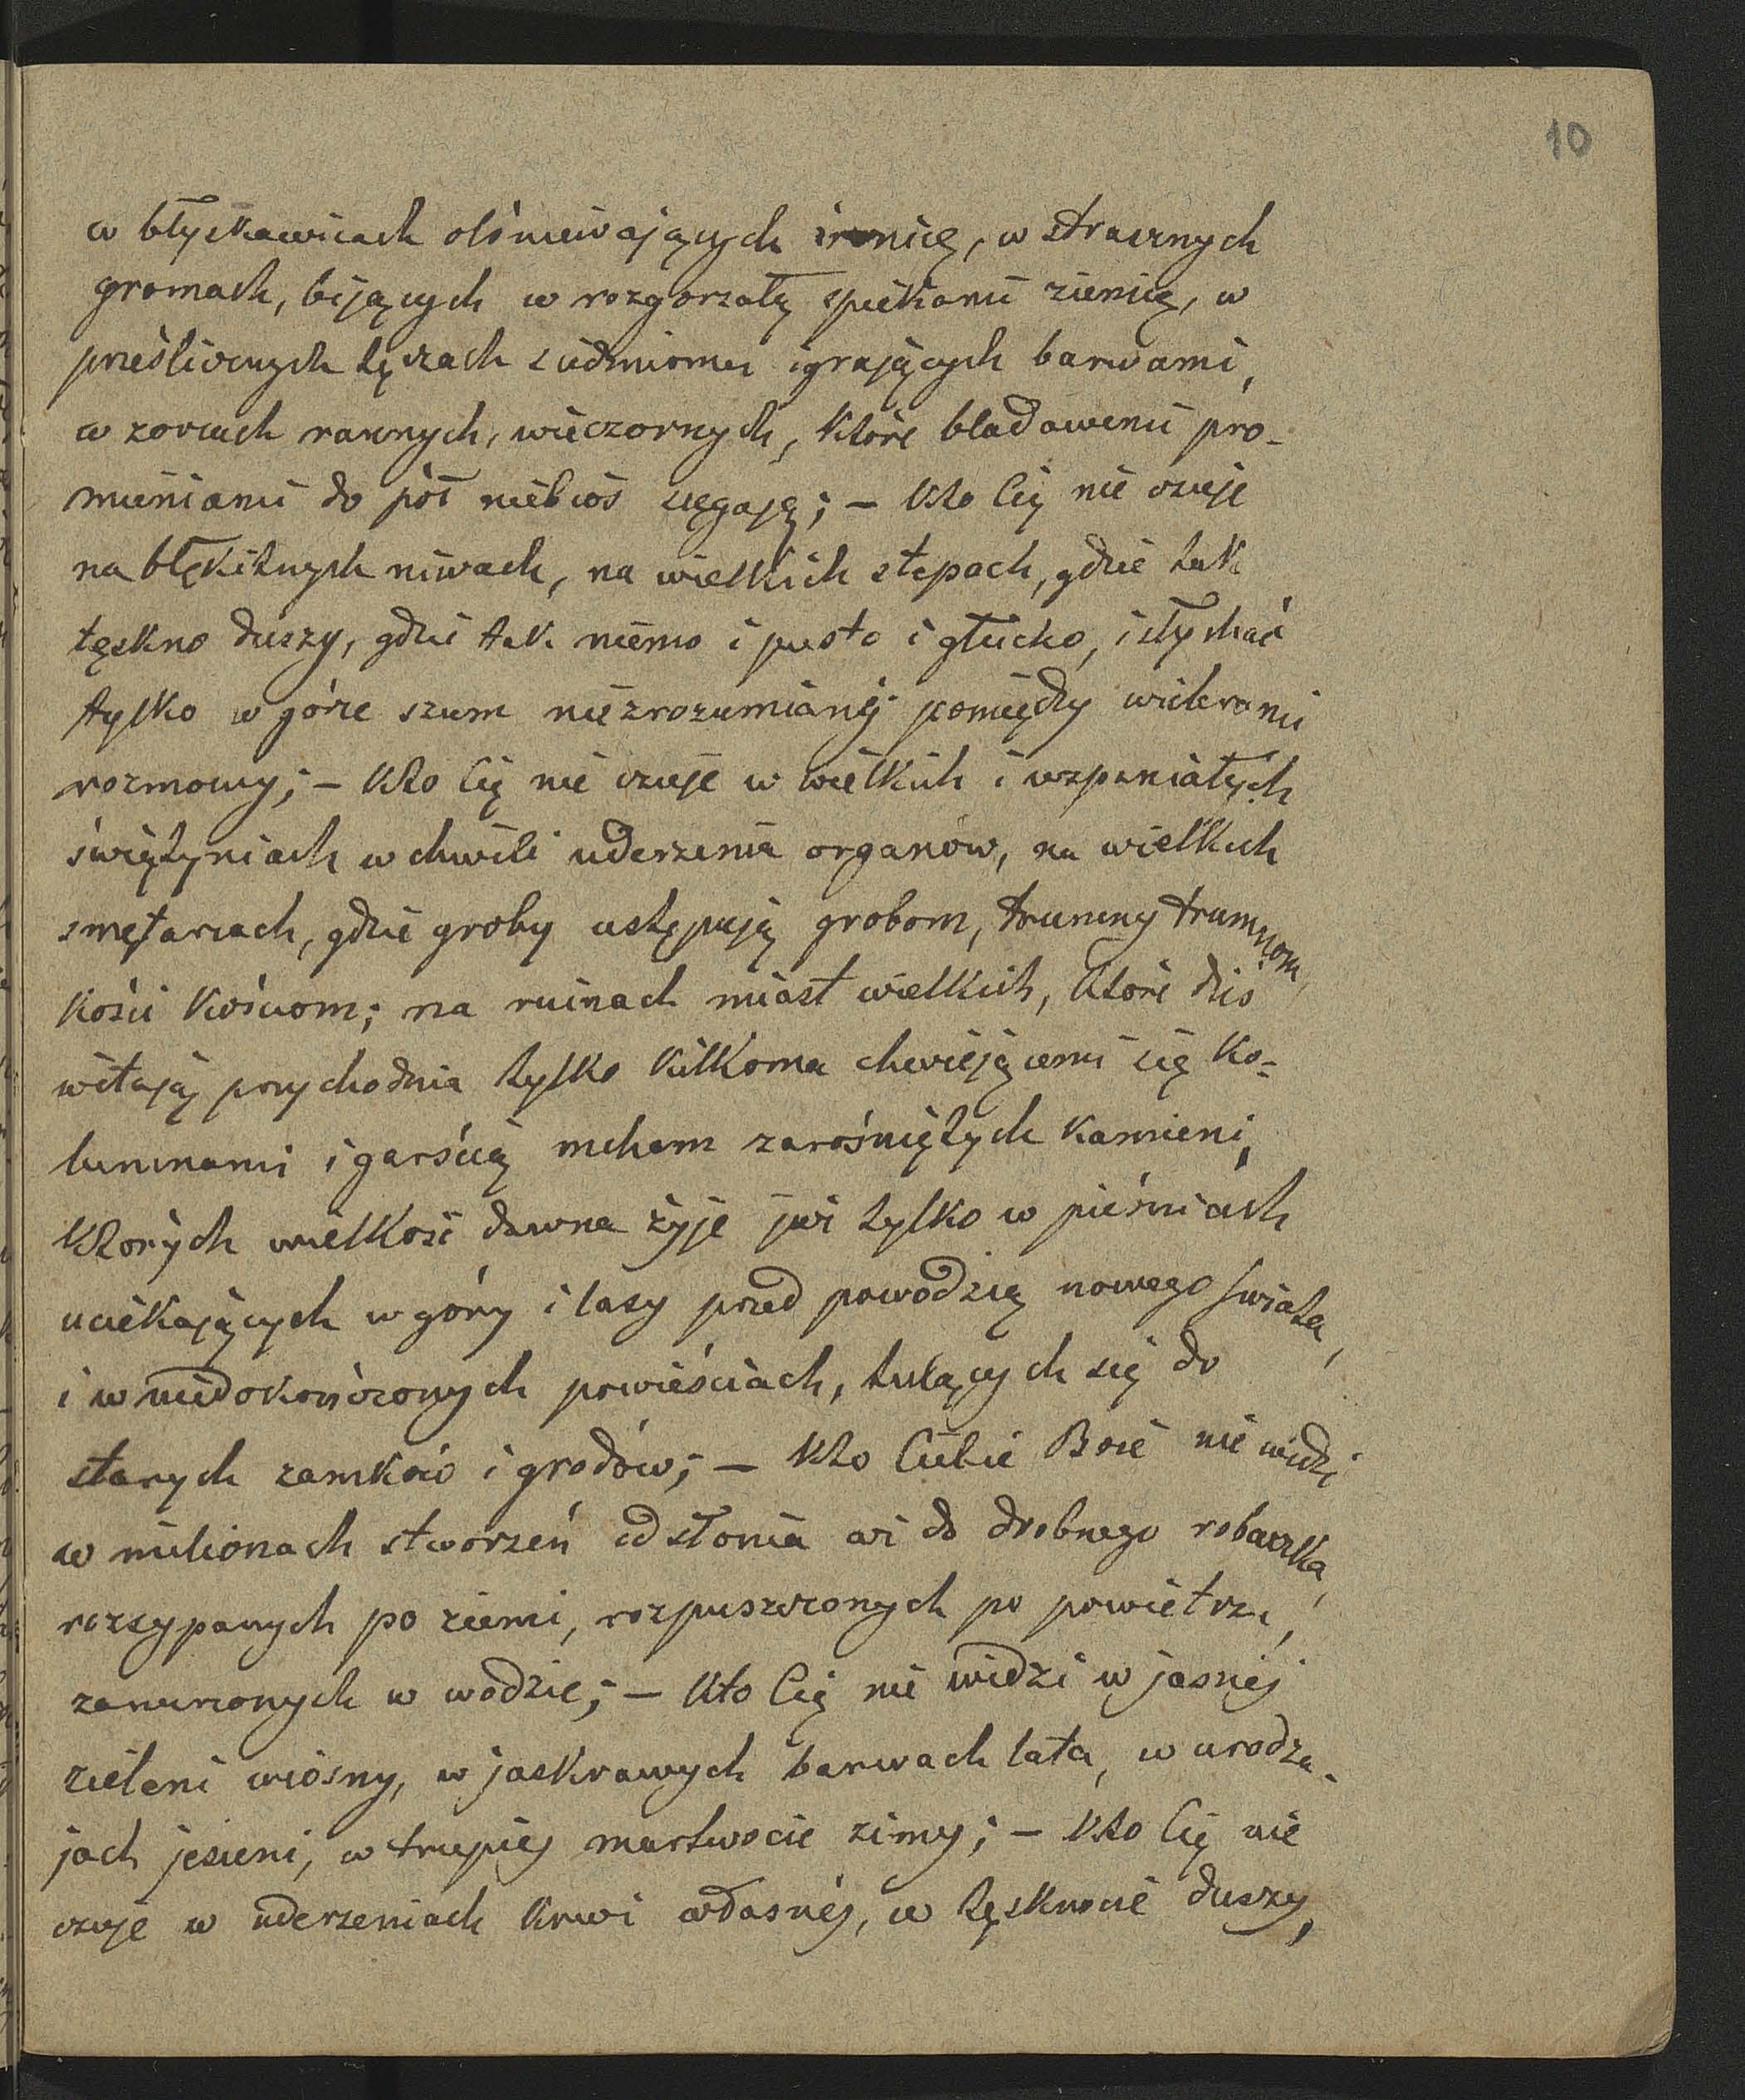 10
w błyskawicach olśniewających źrenicę, w strasznych
gromach, bijących w rozgorzałą spiekami ziemię, w
prześlicznych tęczach siedmioma igrających barwami,
w zorzach rannych, wieczornych, które bladawemi pro-
mieniami do pół niebios sięgają; – Kto Cię nie czuje
na błękitnych niwach, na wielkich stepach, gdzie tak
tęskno duszy, gdzie tak niemo i pusto i głucho, i słychać
tylko w górze szum niezrozumianéj pomiędzy wichrami
rozmowy; – Kto Cię nie czuje w wielkich i wspaniałych
świątyniach w chwili uderzenia organów, na wielkich
smętarzach, gdzie groby ustępują grobom, trumny trumnom,
kości kościom; na ruinach miast wielkich, które dziś
witają przychodnia tylko kilkoma chwiejącemi się ko-
lumnami i garścią mchem zarośniętych kamieni,
których wielkość dawna żyje już tylko w pieśniach
uciekających w góry i lasy przed powodzią nowego świata,
i w niedokończonych powieściach, tulących się do
starych zamków i grodów; – Kto Ciebie Boże nie widzi
w milionach stworzeń od słonia aż do drobnego robaczka,
rozsypanych po ziemi, rozpuszczonych po powietrzu,
zanurzonych w wodzie; – Kto Cię nie widzi w jasnéj
zieleni wiosny, w jaskrawych barwach lata, w urodza-
jach jesieni, w trupiéj martwocie zimy; – Kto Cię nie
czuje w uderzeniach krwi własnéj, w tęsknocie duszy,